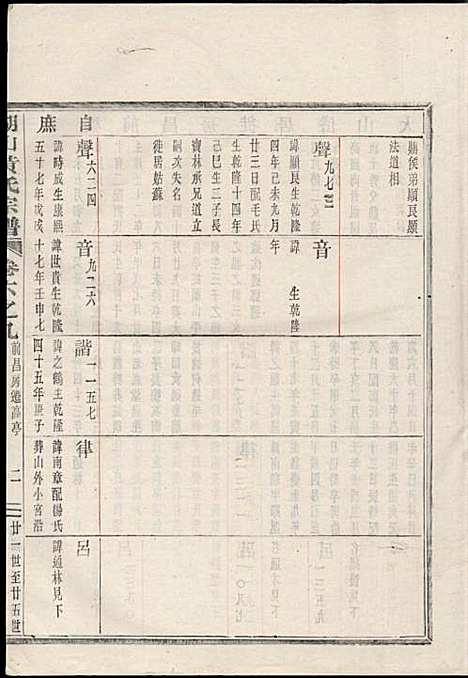 顯侯弟顯良顯
法道相
聲九七三
諱顯良生乾隆
四年己未九月
廿三日配毛氏
生乾隆十四年
己巳生三子長
寶林承兄道立
嗣攻失名
徙居姑蘇
音
諱 生乾隆
自
聲六二四
諱時成生康熙
庶
五十七年戊戌
音九二六
諱世貴生乾隆
十七年壬申七
諧一一五七
諱之鶴主乾隆
四十五年庚子
律
諱南章配楊氏
葬山外小宮沿
呂
諱通林見下
山黃氏宗譜
卷六之九
前昌房遷高亭
二
廿一世至廿五世